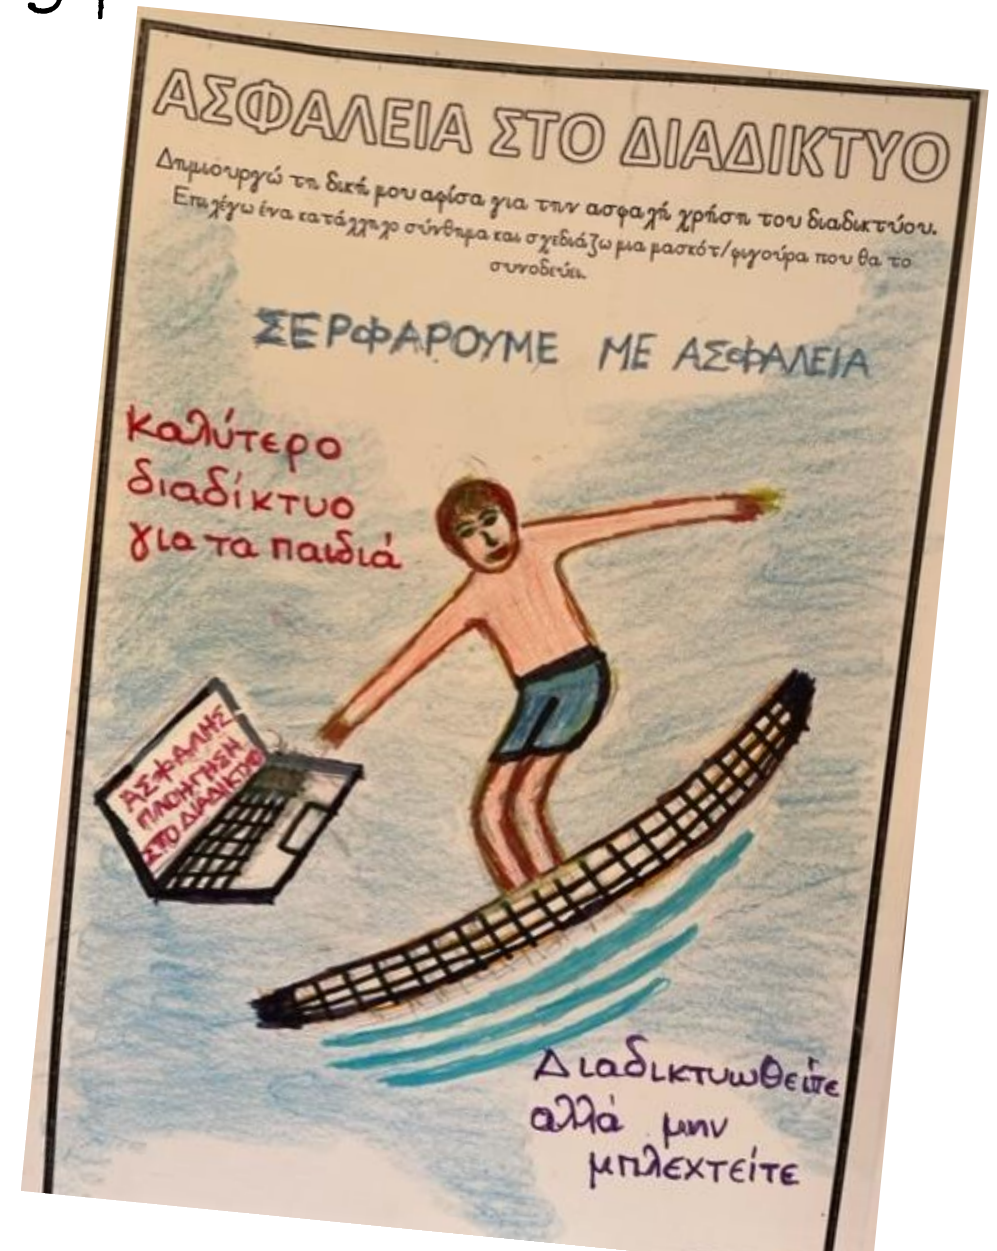 ΑΣΦΑΛΕΙΑ ΣΤΟ ΔΙΑΔΙΚΤΥΟ
Δημιουργώ τη δική μου αφίσα για την ασφαλή χρήση του διαδικτύου.
Επιλέγω ένα κατάλληλο σύνθημα και σχεδιάζω μια μασκότ/φιγούρα που θα το
συνοδεύει.
ΣΕΡΦΑΡΟΥΜΕ ΜΕ ΑΣΦΑΛΕΙΑ
Καλύτερο
διαδίκτυο
για τα παιδιά
ΑΣΦΑΛΗΣ
ΠΛΟΗΓΗΣΗ
ΣΤΟ ΔΙΑΔΙΚΤΥΟ
Διαδικτυωθείτε
αλλά μην
μπλεχτείτε